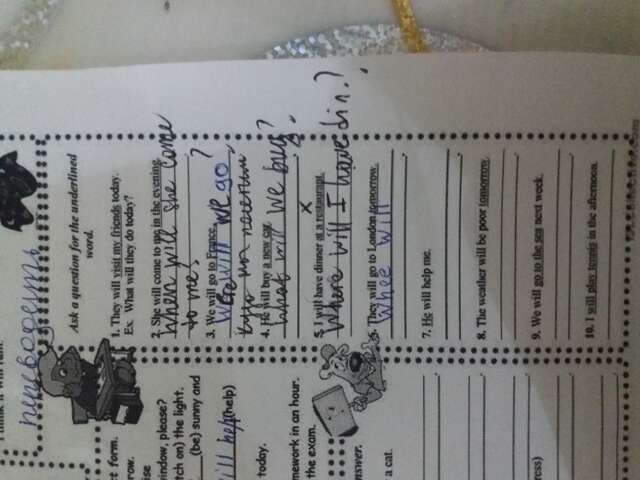 переводить
Ask a question for the underlined
word.
1. They will visit my friends today.
Ex. What will they do today?
2. She will come to me in the evening.
When will she come
to me?
3. We will go to France.
will we go ?
4. He will buy a new car.
What will we buy?
5. I will have dinner at a restaurant.
x
Where will I have din.?
6. They will go to London tomorrow.
Whee will
7. He will help me.
8. The weather will be poor tomorrow.
9. We will go to the sea next week.
10. I will play tennis in the afternoon.
ct form.
row.
ise
window, please?
tch on) the light.
(be) sunny and
will help (help)
today.
mework in an hour.
the exam.
nswer.
a cat.
ress)